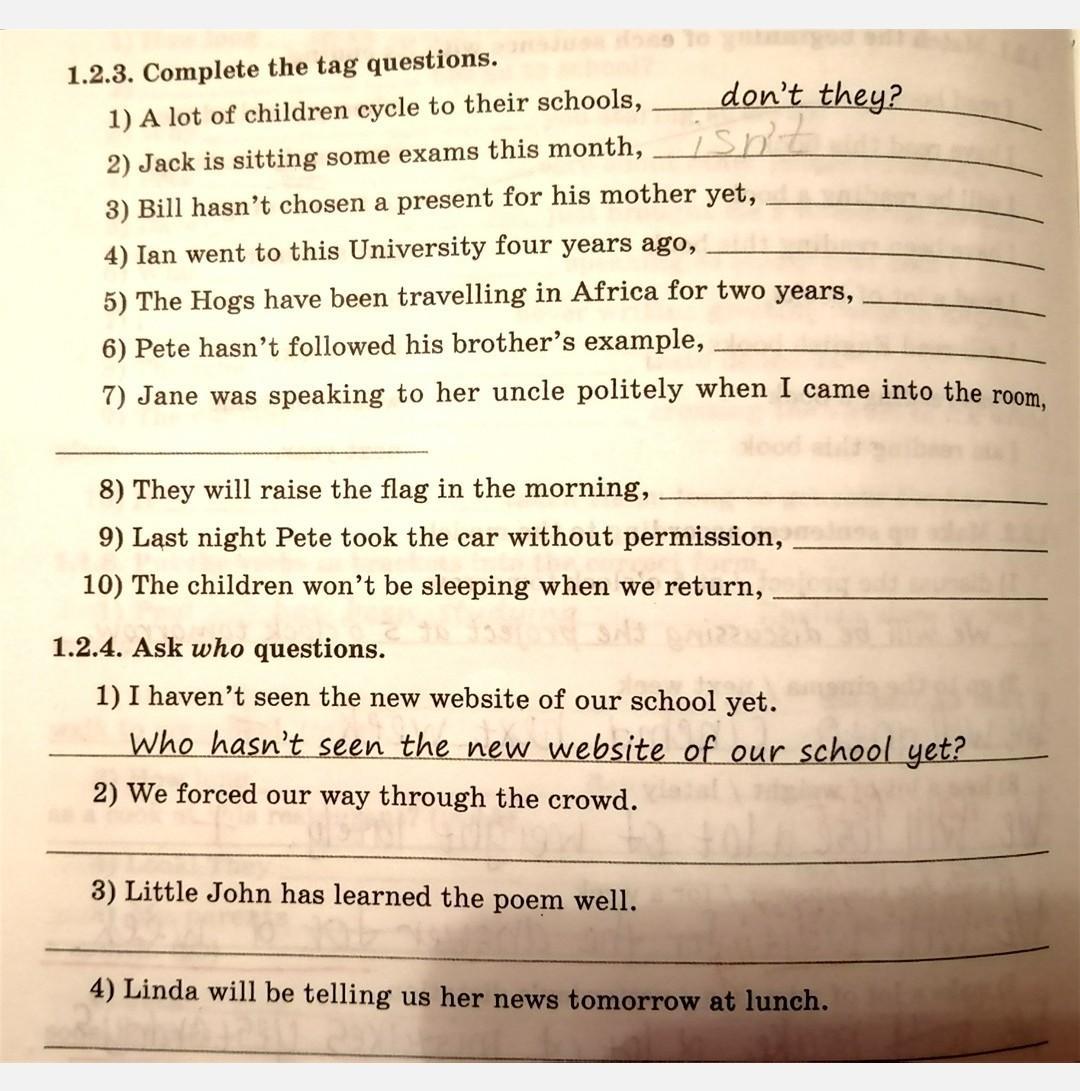 1.2.3. Complete the tag questions.
1) A lot of children cycle to their schools, don't they?
2) Jack is sitting some exams this month, isn't
3) Bill hasn't chosen a present for his mother yet,
4) Ian went to this University four years ago,
5) The Hogs have been travelling in Africa for two years,
6) Pete hasn't followed his brother's example,
7) Jane was speaking to her uncle politely when I came into the room,
8) They will raise the flag in the morning,
9) Last night Pete took the car without permission,
10) The children won't be sleeping when we return,
1.2.4. Ask who questions.
1) I haven't seen the new website of our school yet.
Who hasn't seen the new website of our school yet?
2) We forced our way through the crowd.
3) Little John has learned the poem well.
4) Linda will be telling us her news tomorrow at lunch.